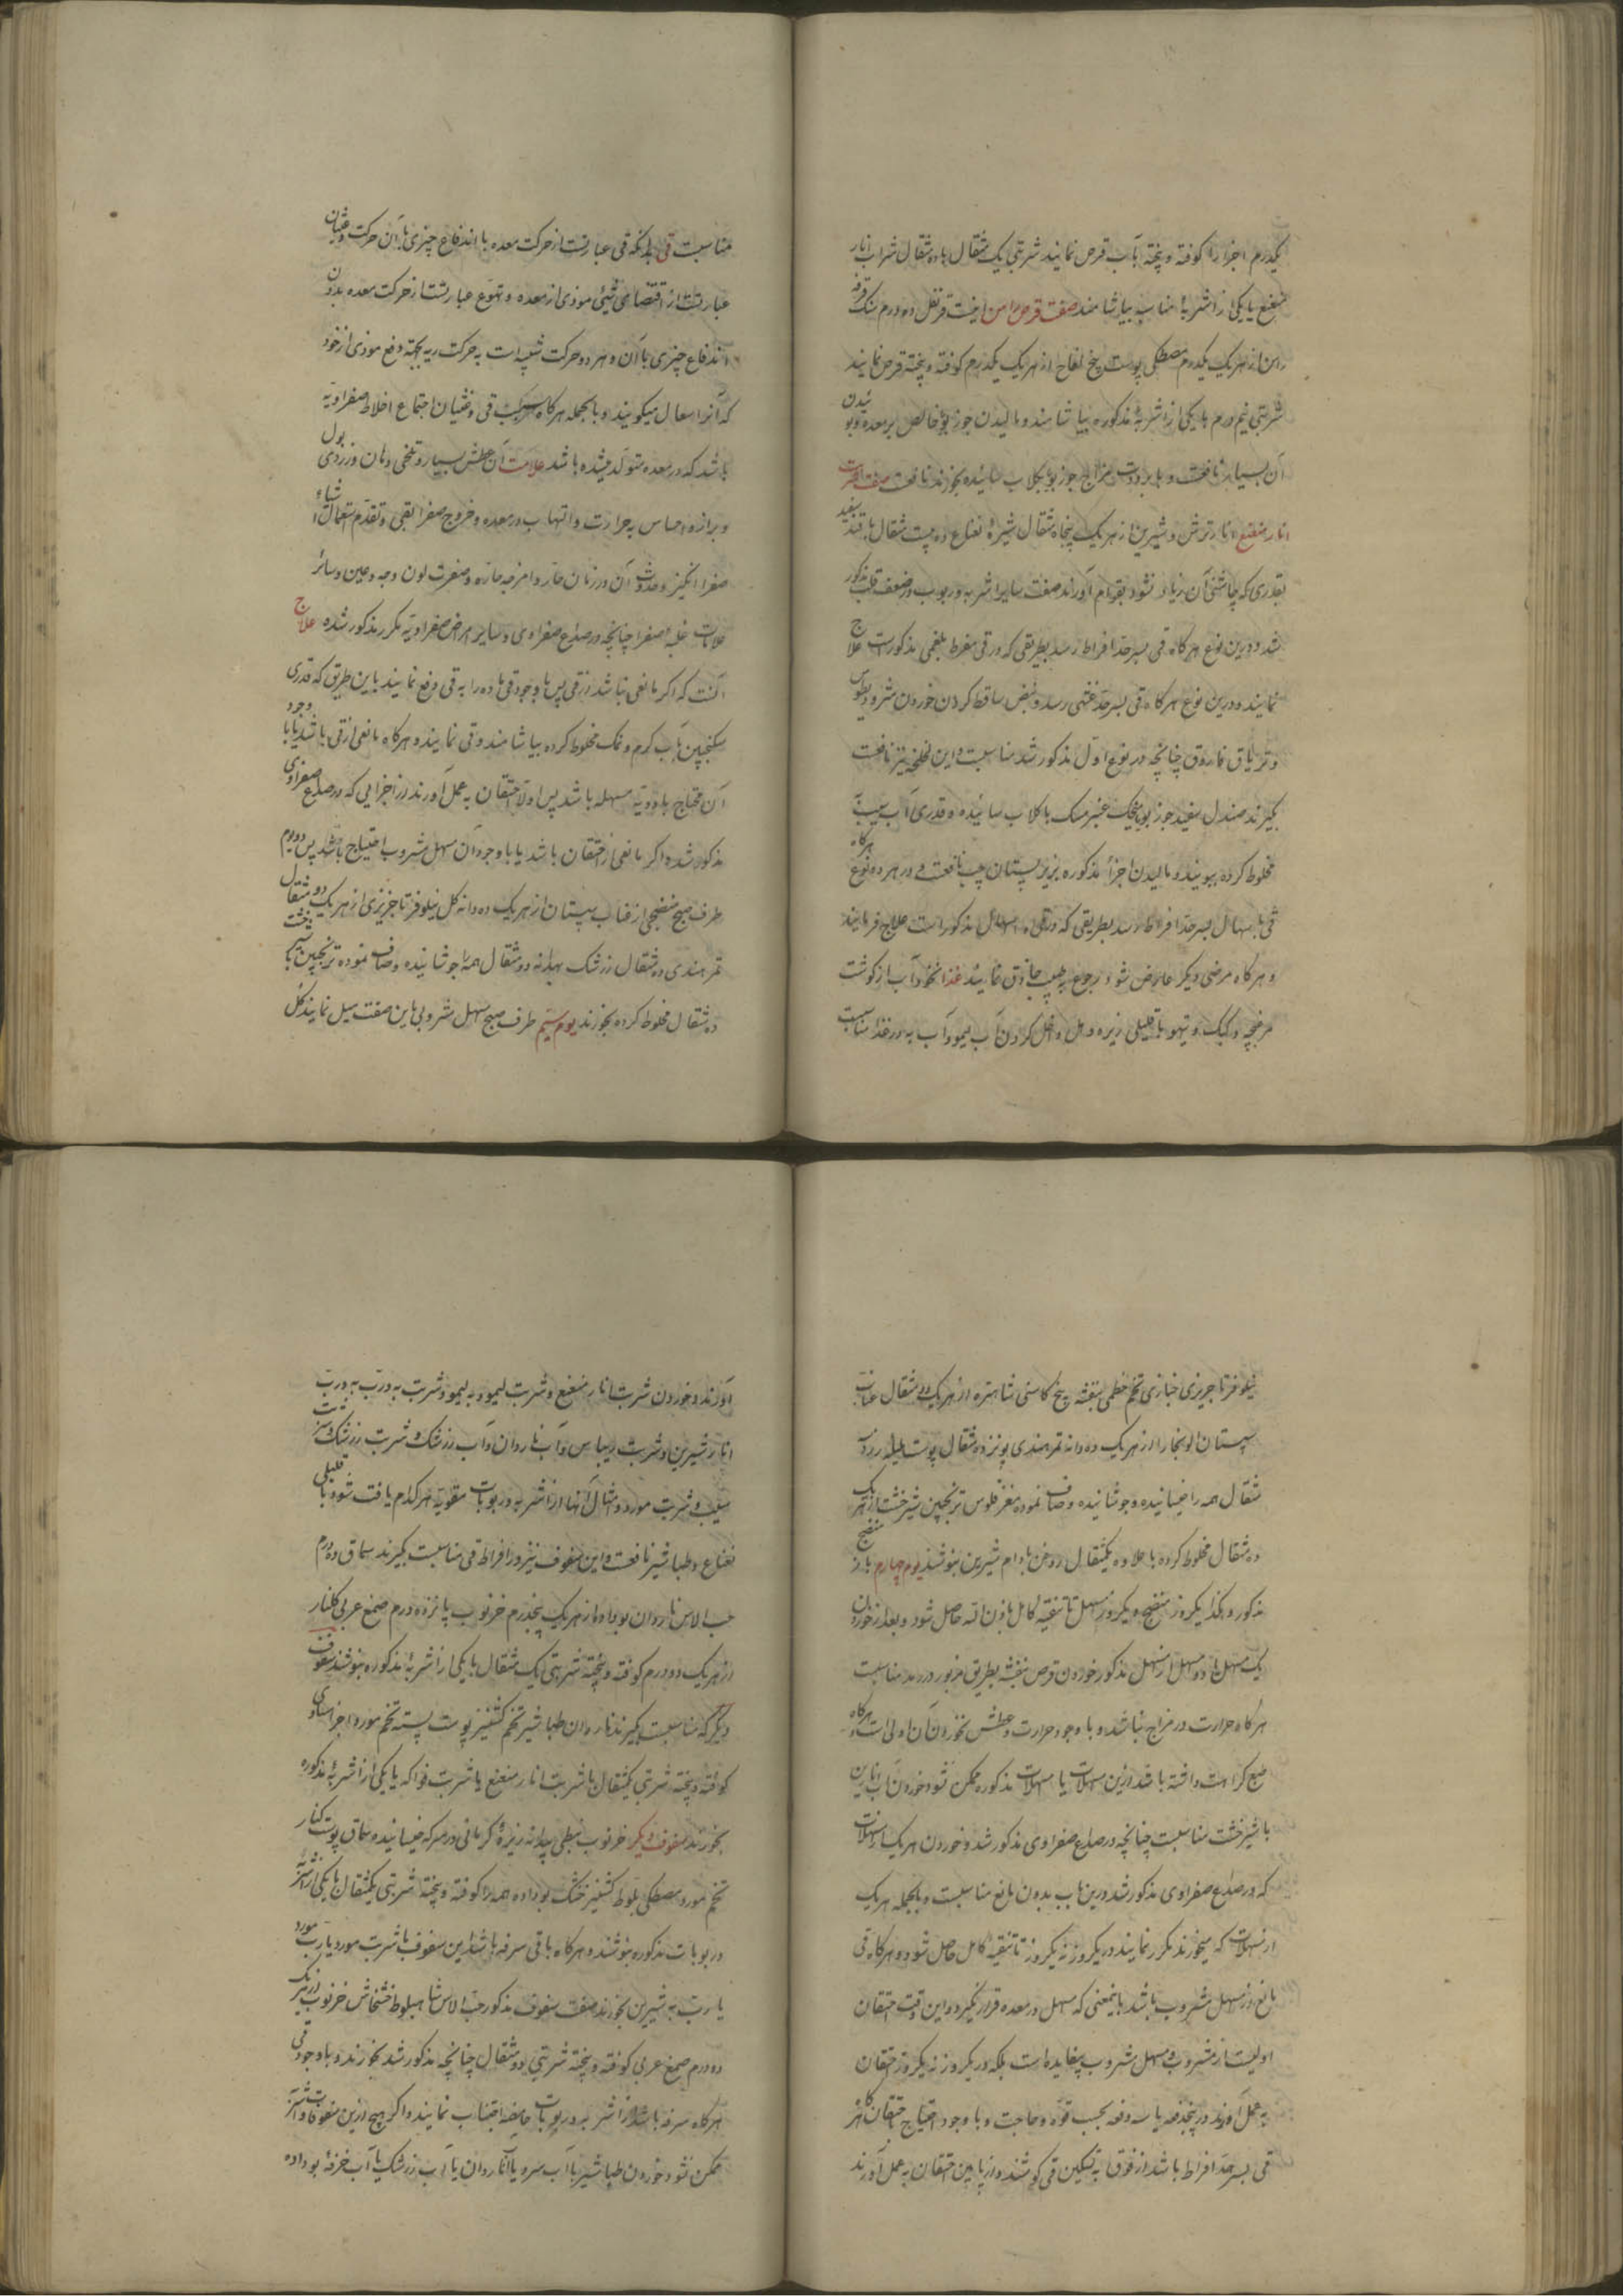 یکدرم اجزا را کوفته و پخته بآب قرص نمایند شربتی یک مثقال با ده مثقال شراب انار
منعنع یا یکی از اشربهٔ مناسبه بیاشامند صفت قرص رامن اینست قرنفل ده درم سک قرفه
رامن از هریک یکدرم مصطکی پوست بیخ لفاح از هریک یکدرم کوفته و پخته قرص نمایند
شربتی نیم درم با یکی از اشربهٔ مذکوره بیاشامند و مالیدن جوز بوّ خالص بر معده و بوئیدن
آن بسیار نافعست و با برودت مزاج جوز بوّ بکلاب سائیده بخورند نافعست صفت شربت
انار منعنع انار ترش و شیرین از هریک پنجاه مثقال شیرهٔ نعناع ده بیست مثقال با قند سفید
بقدری که چاشنی آن زیاد نشود بقوام آورند صفت سایر اشربه و ربوب در ضعف قلب مذکور
شد و درین نوع هرگاه قی بسر حد افراط رسد بطریقی که در قی مفرط بلغمی مذکور است علاج
نمایند و درین نوع هرگاه قی بسر حد غشی رسد و نبض ساقط کردن خوردن مثرودیطوس
و تریاق فاروق چنانچه در نوع اول مذکور شد مناسبست و این لخلخه نیز نافعست
بگیرند صندل سفید جوز بویا میخک عنبر مسک با کلاب سائیده و قدری آب سیب
مخلوط کرده ببویند و مالیدن اجزاء مذکوره بزیر پستان چپ نافعست و در هر دو نوع هرگاه
قی با اسهال بسر حد افراط رسد بطریقی که در قی و اسهال مذکور است علاج فرمایند
و هرگاه مرضی دیگر عارض شود رجوع به طبیب حاذق نمایند غذا نخودآب از گوشت
مرغ بچه و کبک و تیهو با قلیلی زیره و هل داخل کردن آب لیمو و آب به در غذا مناسبست
مناسبست قی بدانکه قی عبارتست از حرکت معده با اندفاع چیزی با آن حرکت و غثیان
عبارتست از اقتضای شیئی موذی از معده و تهوع عبارتست از حرکت معده بدون
اندفاع چیزی با آن و هر دو حرکت شبیه است به حرکت ریه بجهة دفع موذی از خود
که آنرا سعال میگویند و بالجمله هرگاه سبب قی و غثیان اجتماع اخلاط صفراویه
باشد که در معده متولد میشده باشد علامت آن عطش بسیار و تلخی دهان و زردی بول
و براز و احساس به حرارت و التهاب در معده و خروج صفرا بقی و تقدم استعمال اشیاء
صفرا انگیز و حدوث آن در زمان حار و امزجه حاره و صفرت لون وجه و عین و سائر
علامات غلبه صفرا چنانچه در صداع صفراوی و سایر امراض صفراویه مکرر مذکور شده علاج
آنست که اگر مانعی نباشد از قی پس با وجود قی ماده را به قی دفع نمایند باین طریق که قدری
سکنجبین بآب گرم و نمک مخلوط کرده بیاشامند و قی نمایند و هرگاه مانعی از قی باشد یا با وجود
آن محتاج بادویهٔ مسهله باشد پس اولا احتقان به عمل آورند از اجزایی که در صداع صفراوی
مذکور شده اگر مانعی از احتقان باشد یا با وجود آن مسهل مشروب احتیاج باشد پس روز دویم
طرف صبح منضجی از عناب سپستان از هریک ده دانه گل نیلوفر تاجریزی از هریک دو مثقال
تمر هندی ده مثقال زرشک بهدانه دو مثقال همه را جوشانیده و صاف نموده ترنجبین یا شیرخشت
ده مثقال مخلوط کرده بخورند یوم سیم طرف صبح مسهل مشروبی باین صفت میل نمایند گل
نیلوفر تاجریزی خبازی تخم خطمی بنفشه بیخ کاسنی شاهتره از هریک دو مثقال عناب
سپستان آلوبخارا از هریک ده دانه تمر هندی پانزده مثقال پوست هلیله زرد
مثقال همه را خیسانیده و جوشانیده و صاف نموده مغز فلوس ترنجبین شیرخشت از هریک
ده مثقال مخلوط کرده با علاوه یکمثقال روغن بادام شیرین بنوشند یوم چهارم باز منضج
مذکور و هکذا یکروز منضج و یکروز مسهل تا تنقیه کامل باذن الله حاصل شود و بعد از خوردن
یک مسهل یا دو مسهل از مسهل مذکور خوردن قرص بنفشه بطریق مزبور در رمد مناسبست
هرگاه حرارت در مزاج نباشد و با وجود حرارت و عطش نخوردن آن اولی است و هرگاه
طبع کراهت داشته باشد ازین مسهلات یا مسهلات مذکوره ممکن نشود خوردن آب انارین
با شیرخشت مناسبست چنانچه در صداع صفراوی مذکور شد و خوردن هریک از مسهلات
که در صداع صفراوی مذکور شد درین باب بدون مانع مناسبست و بالجمله هریک
از مسهلات که میخورند مکرر نمایند در یکروز نه یکروز تا تنقیه کامل حاصل شود و هرگاه قی
مانع از مسهل مشروب باشد باینمعنی که مسهل در معده قرار نگیرد و این وقت احتقان
اولیست از مشروب و مسهل مشروب بیفایده است بلکه در یکروز نه یکروز احتقان
به عمل آورند در پنجدفعه یا سه دفعه بحسب قوه و حاجت و با وجود احتیاج احتقان هرگاه
قی بسر حد افراط باشد از فوق به تسکین قی کوشند و از پایین احتقان به عمل آورند
آورند و خوردن شربت انار منعنع و شربت لیمو و به لیمو و شربت به و رب به و رب
انار شیرین و شربت ریباس و آب ناردان و آب زرشک و شربت زرشک و شربت
سیب و شربت مورد و امثال آنها از اشربه و ربوبات مقویه هر کدام یافت شود با قلیلی
نعناع و طباشیر نافعست و این سفوف نیز در افراط قی مناسبست بگیرند سماق ده درم
حب الآس ناردان بوداده از هریک پنجدرم خرنوب پانزده درم صمغ عربی گلنار
از هریک دو درم کوفته و پخته شربتی یک مثقال با یکی از اشربهٔ مذکوره بنوشند سفوف
دیگر که مناسبست بگیرند ناردان طباشیر تخم گشنیز پوست پسته تخم مورد اجزا مساوی
کوفته و پخته شربتی یکمثقال با شربت انار منعنع یا شربت فواکه یا یکی از اشربهٔ مذکوره
بخورند سفوف دیگر خرنوب نبطی بهدانه زیرهٔ کرمانی در سرکه خیسانیده سماق پوست کنار
تخم مورد مصطکی بلوط گشنیز خشک بوداده همه را کوفته و پخته شربتی یکمثقال با یکی از اشربه
و ربوبات مذکوره بنوشند و هرگاه با قی سرفه باشد این سفوف با شربت مورد یا رب مورد
یا رب به شیرین بخورند صفت سفوف مذکور حب الآس شاه بلوط خشخاش خرنوب از هریک
ده درم صمغ عربی کوفته و پخته شربتی دو مثقال چنانچه مذکور شد بخورند و با وجود قی
هرگاه سرفه باشد از اشربه و ربوبات حامضه اجتناب نمایند و اگر هیچ ازین سفوفات و اشربه
ممکن نشود خوردن طباشیر با آب سرد یا آب ناردان یا آب زرشک یا آب خرفهٔ بوداده